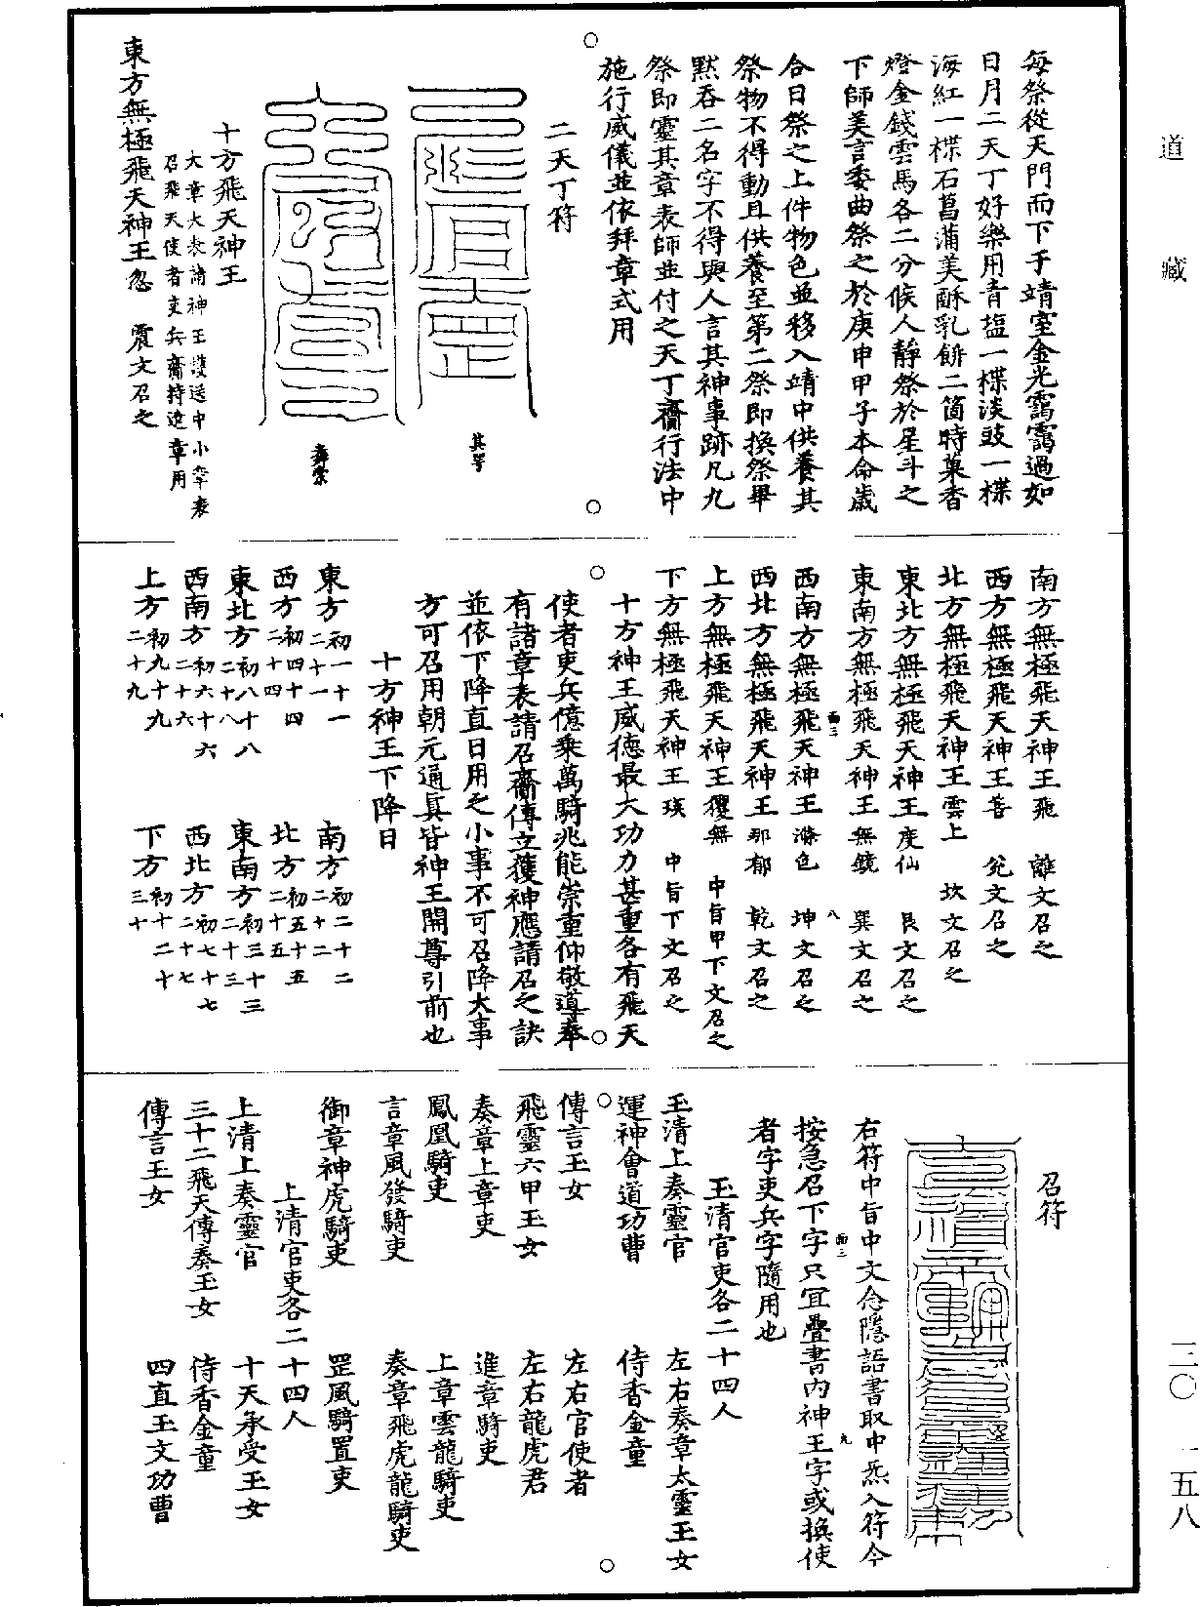 道藏
每祭從天門而下于靖室金光靄靄過如
日月二天丁好樂用青塩一楪淡豉一楪
海紅一楪石菖蒲美酥乳餅二箇時菓香
燈金錢雲馬各二分候人靜祭於星斗之
下師美言委曲祭之於庚申甲子本命歲
合日祭之上件物色並移入靖中供養其
祭物不得動且供養至第二祭即換祭畢
默吞二名字不得與人言其神事跡凡九
祭即靈其章表師並付之天丁齋行法中
施行威儀並依拜章式用
二天丁符
十方飛天神王
大章大表請神王護送中小章表
召飛天使者吏兵齎持遞章用
東方無極飛天神王忽 震文召之
南方無極飛天神王飛 離文召之
西方無極飛天神王菩 兊文召之
北方無極飛天神王雲上 坎文召之
東北方無極飛天神王度仙 艮文召之
東南方無極飛天神王無鏡 巽文召之
西南方無極飛天神王滌色 坤文召之
西北方無極飛天神王那郁 乾文召之
上方無極飛天神王獲無 中旨甲下文召之
下方無極飛天神王瑛 中旨下文召之
十方神王威德最大功力甚重各有飛天
使者吏兵億乘萬騎兆能崇重仰敬導奉
有諸章表請召齎傳立獲神應請召之訣
並依下降直日用之小事不可召降大事
方可召用朝元通真皆神王開尊引前也
十方神王下降日
東方初一十一二十一 南方初二十二二十二
西方初四十四二十四 北方初五十五二十五
東北方初八十八二十八 東南方初三十三二十三
西南方初六十六二十六 西北方初七十七二十七
上方初九十九二十九 下方初十二十三十
召符
右符中旨中文念隱語書取中炁入符今
按急召下字只宜疊書內神王字或換使
者字吏兵字隨用也
玉清官吏各二十四人
玉清上奏靈官 左右奏章太靈玉女
運神會道功曹 侍香金童
傳言玉女 左右官使者
飛靈六甲玉女 左右龍虎君
奏章上章吏 進章騎吏
鳳凰騎吏 上章雲龍騎吏
言章風發騎吏 奏章飛虎龍騎吏
御章神虎騎吏 罡風騎置吏
上清官吏各二十四人
上清上奏靈官 十天承受玉女
三十二飛天傳奏玉女 侍香金童
傳言玉女 四直玉文功曹
三〇 一五八